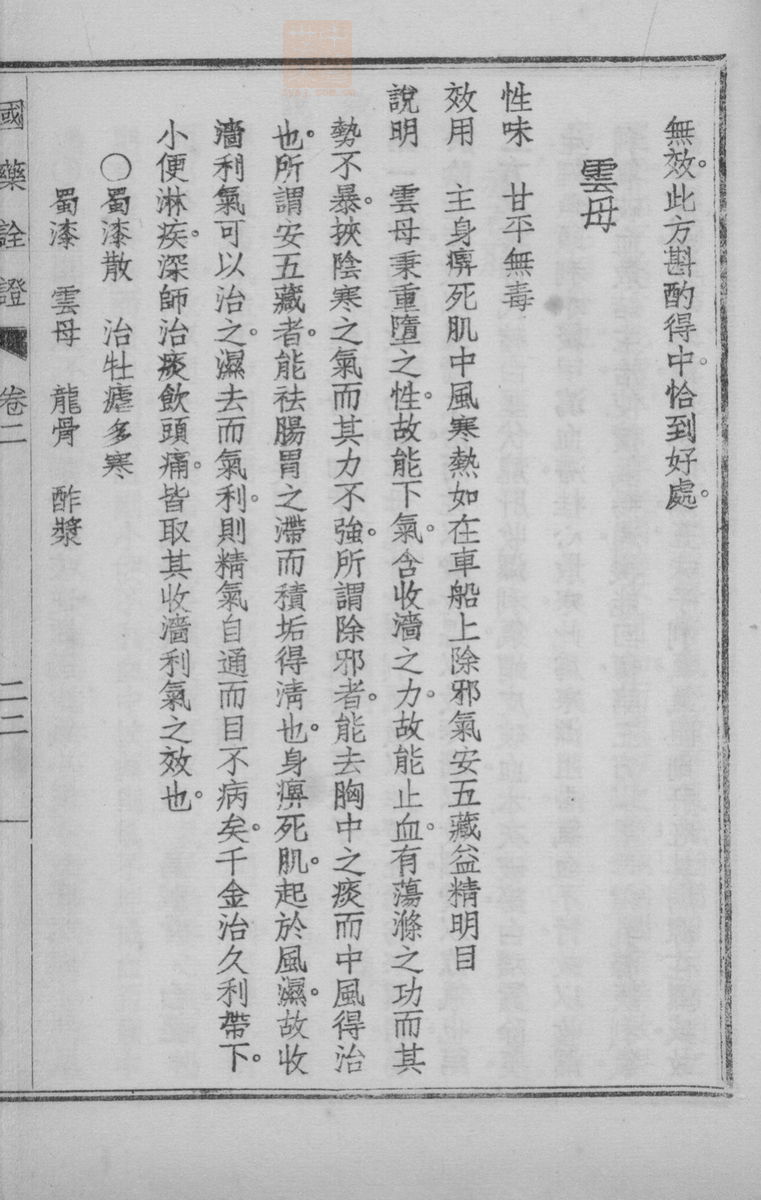 無效。此方斟酌得中。恰到好處。
雲母
性味　甘平無毒
效用　主身痹死肌中風寒熱如在車船上除邪氣安五藏益精明目
說明　雲母秉重墮之性。故能下氣。含收濇之力。故能止血。有蕩滌之功而其
勢不暴。挾陰寒之氣而其力不強。所謂除邪者。能去胸中之痰而中風得治
也。所謂安五藏者。能祛腸胃之滯而積垢得淸也。身痹死肌。起於風濕。故收
濇利氣可以治之。濕去而氣利。則精氣自通而目不病矣。千金治久利帶下。
小便淋疾。深師治痰飲頭痛。皆取其收濇利氣之效也。
〇蜀漆散　治牡瘧多寒
蜀漆　雲母　龍骨　酢漿
國藥詮證　卷二　二二